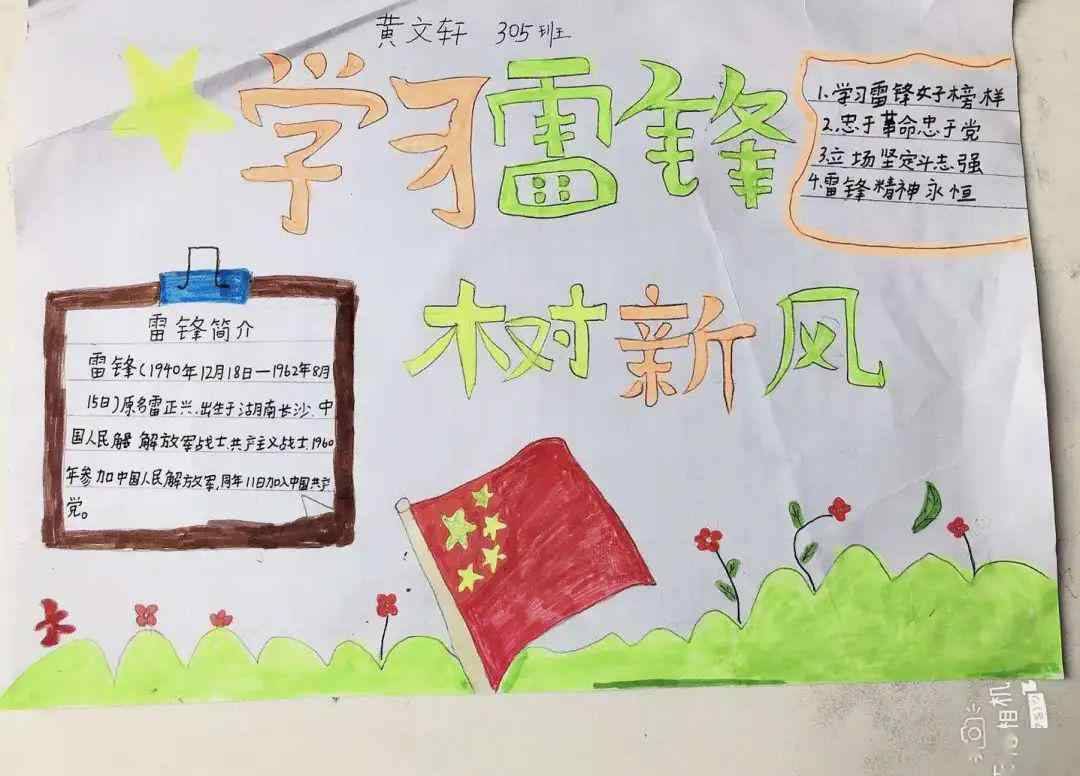 黄文轩 305班
学习雷锋
树新风
1.学习雷锋好榜样
2.忠于革命忠于党
3立场坚定斗志强
4.雷锋精神永恒
雷锋简介
雷锋(1940年12月18日—1962年8月
15日)原名雷正兴.出生于湖南长沙.中
国人民解 解放军战士.共产主义战士.1960
年参加中国人民解放军,同年11日加入中国共产
党。
相机